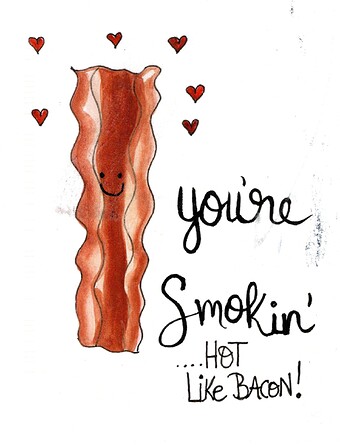 you're
Smokin'
....HOT
Like BACON!